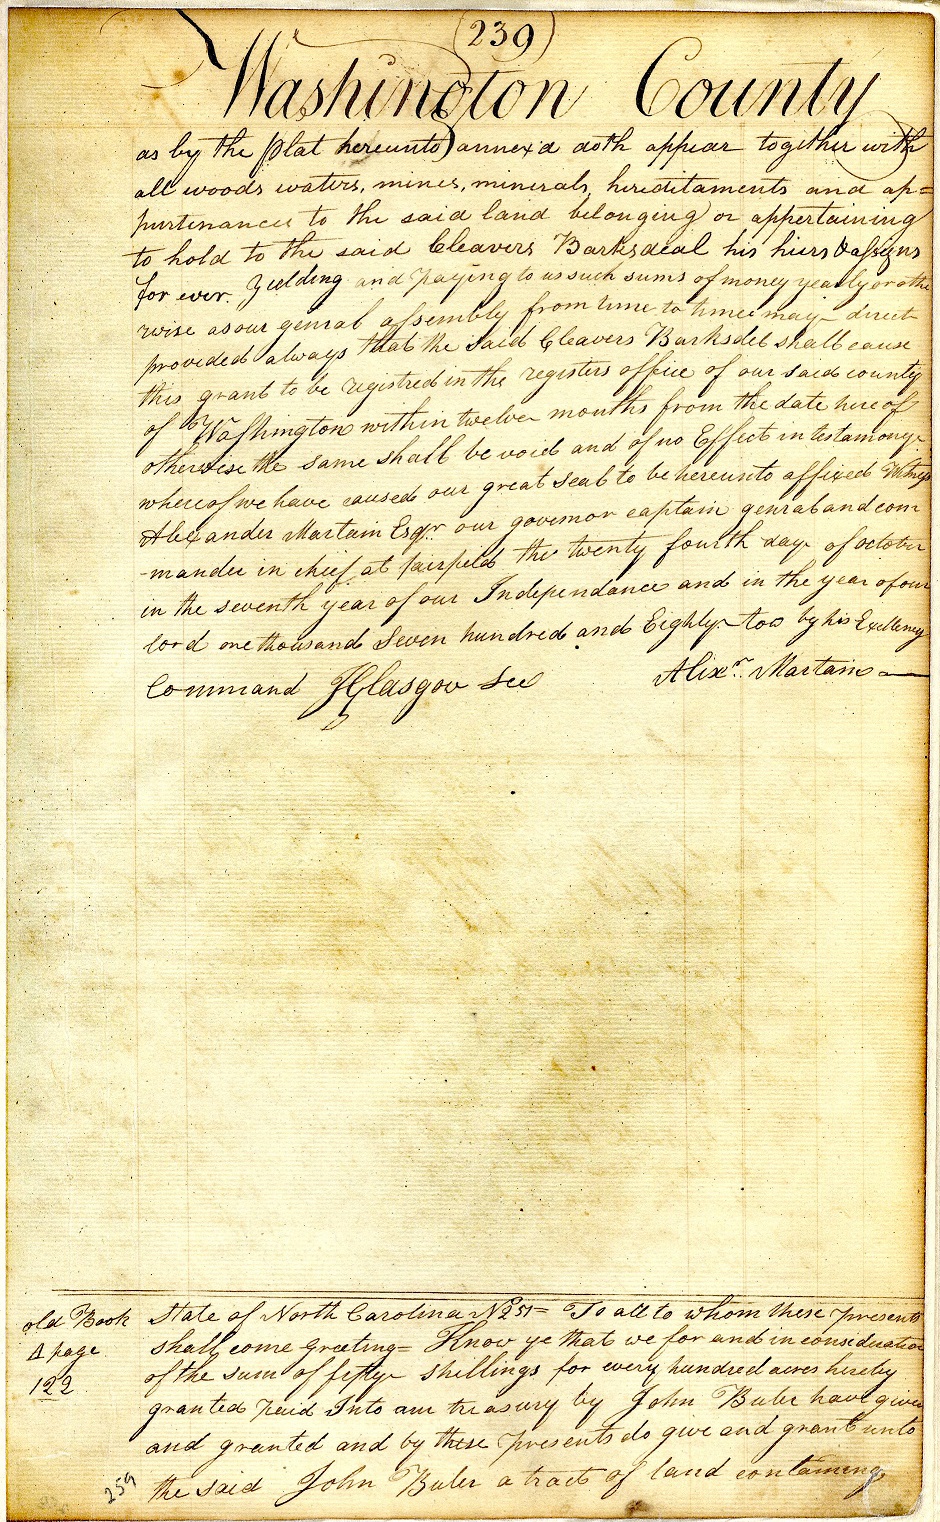 (239)
Washington County
as by the plat hereunto annex'd doth appear together with
all woods waters, mines, minerals, hereditaments and ap=
purtinances to the said land belonging or appertaining
to hold to the said Cleavers Barksdeal his hiers & assigns
for ever. Yielding and paying to us such sums of money yearly or othe
rwise as our genral assembly from time to time may direct
provided always that the said Cleavers Barksdel shall cause
this grant to be registred in the registers office of our said county
of Washington within twelve months from the date here of
otherwise the same shall be void and of no Effect in testamony
whereof we have caused our great seal to be hereunto affixed Witness
Alexander Martain Esqr. our governor captain genral and com
-mander in chief at fairfield the twenty fourth day of october
in the seventh year of our Independance and in the year of our
lord one thousand Seven hundred and Eighty too by his Excellency
Command JGlasgow Sec Alixr. Martain
old Book
A page
122
State of North Carolina No 251= To all to whom these presents
shall come Greeting= Know ye that we for and in consideration
of the sum of fifty shillings for every hundred acres hereby
granted paid Into our treasury by John Buler have given
and granted and by these presents do give and grant unto
the said John Buler a tract of land containing
259